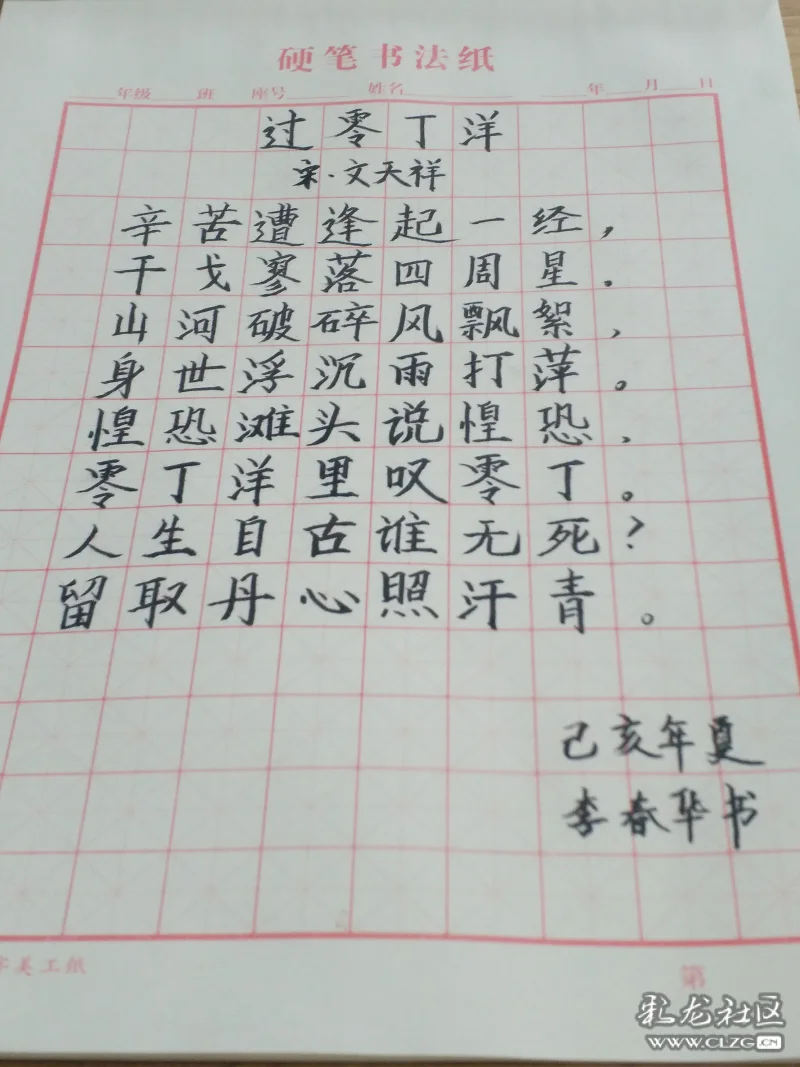 硬笔书法纸
年级 班 座号 姓名 年 月 日
过零丁洋
宋·文天祥
辛苦遭逢起一经，
干戈寥落四周星．
山河破碎风飘絮，
身世浮沉雨打萍。
惶恐滩头说惶恐．
零丁洋里叹零丁。
人生自古谁无死？
留取丹心照汗青。
己亥年夏
李春华书
美工纸
第
彩龙社区
WWW.CLZG.CN